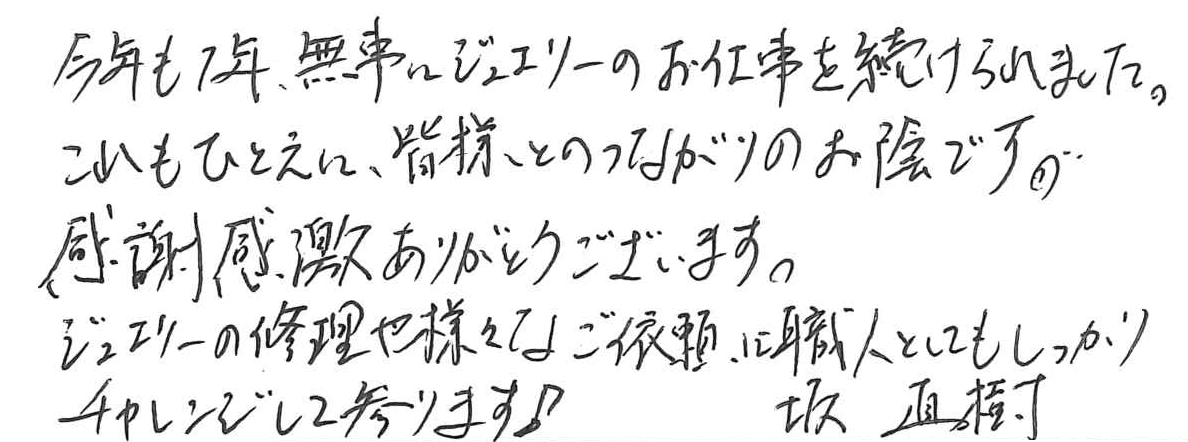 今年も1年、無事にジュエリーのお仕事を続けられました。
これもひとえに、皆様とのつながりのお陰です。
感謝感激ありがとうございます。
ジュエリーの修理や様々なご依頼に職人としてもしっかり
チャレンジして参ります♪ 坂 直樹